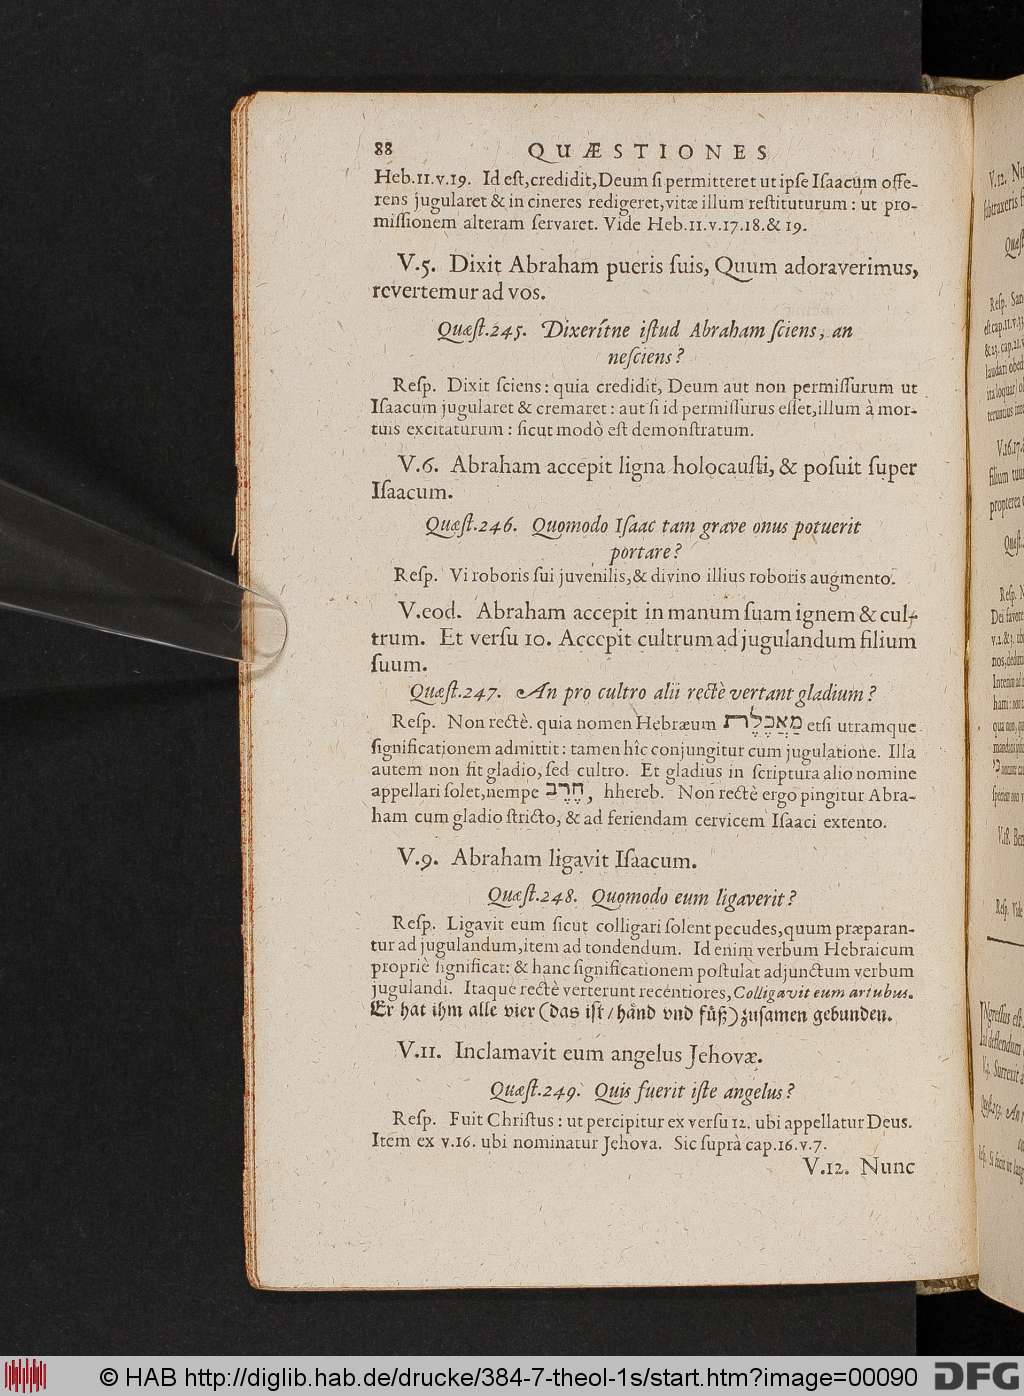 88 QUÆSTIONES
Heb.11.v.19. Id eſt,credidit,Deum ſi permitteret ut ipſe Iſaacum offe-
rens jugularet & in cineres redigeret,vitæ illum reſtituturum : ut pro-
miſſionem alteram ſervaret. Vide Heb.11.v.17.18.& 19.
V.5. Dixit Abraham pueris ſuis, Quum adoraverimus,
revertemur ad vos.
Quæſt.245. Dixerítne iſtud Abraham ſciens, an
neſciens?
Reſp. Dixit ſciens : quia credidit, Deum aut non permiſſurum ut
Iſaacum jugularet & cremaret : aut ſi id permiſſurus eſſet,illum à mor-
tuis excitaturum : ſicut modò eſt demonſtratum.
V.6. Abraham accepit ligna holocauſti, & poſuit ſuper
Iſaacum.
Quæſt.246. Quomodo Iſaac tam grave onus potuerit
portare?
Reſp. Vi roboris ſui juvenilis,& divino illius roboris augmento.
V.eod. Abraham accepit in manum ſuam ignem & cul-
trum. Et verſu 10. Accepit cultrum ad jugulandum filium
ſuum.
Quæſt.247. An pro cultro alii rectè vertant gladium?
Reſp. Non rectè. quia nomen Hebræum מַאֲכֶלֶת etſi utramque
ſignificationem admittit : tamen hîc conjungitur cum jugulatione. Illa
autem non fit gladio, ſed cultro. Et gladius in ſcriptura alio nomine
appellari ſolet,nempe חֶרֶב, hhereb. Non rectè ergo pingitur Abra-
ham cum gladio ſtricto, & ad feriendam cervicem Iſaaci extento.
V.9. Abraham ligavit Iſaacum.
Quæſt.248. Quomodo eum ligaverit?
Reſp. Ligavit eum ſicut colligari ſolent pecudes,quum præparan-
tur ad jugulandum,item ad tondendum. Id enim verbum Hebraicum
propriè ſignificat: & hanc ſignificationem poſtulat adjunctum verbum
jugulandi. Itaque rectè verterunt recentiores, Colligavit eum artubus.
Er hat ihm alle vier (das iſt / haͤnd vnd fuͤß) zuſamen gebunden.
V.11. Inclamavit eum angelus Jehovæ.
Quæſt.249. Quis fuerit iſte angelus?
Reſp. Fuit Chriſtus : ut percipitur ex verſu 12. ubi appellatur Deus.
Item ex v.16. ubi nominatur Jehova. Sic ſuprà cap.16.v.7.
V.12. Nunc
© HAB http://diglib.hab.de/drucke/384-7-theol-1s/start.htm?image=00090 DFG